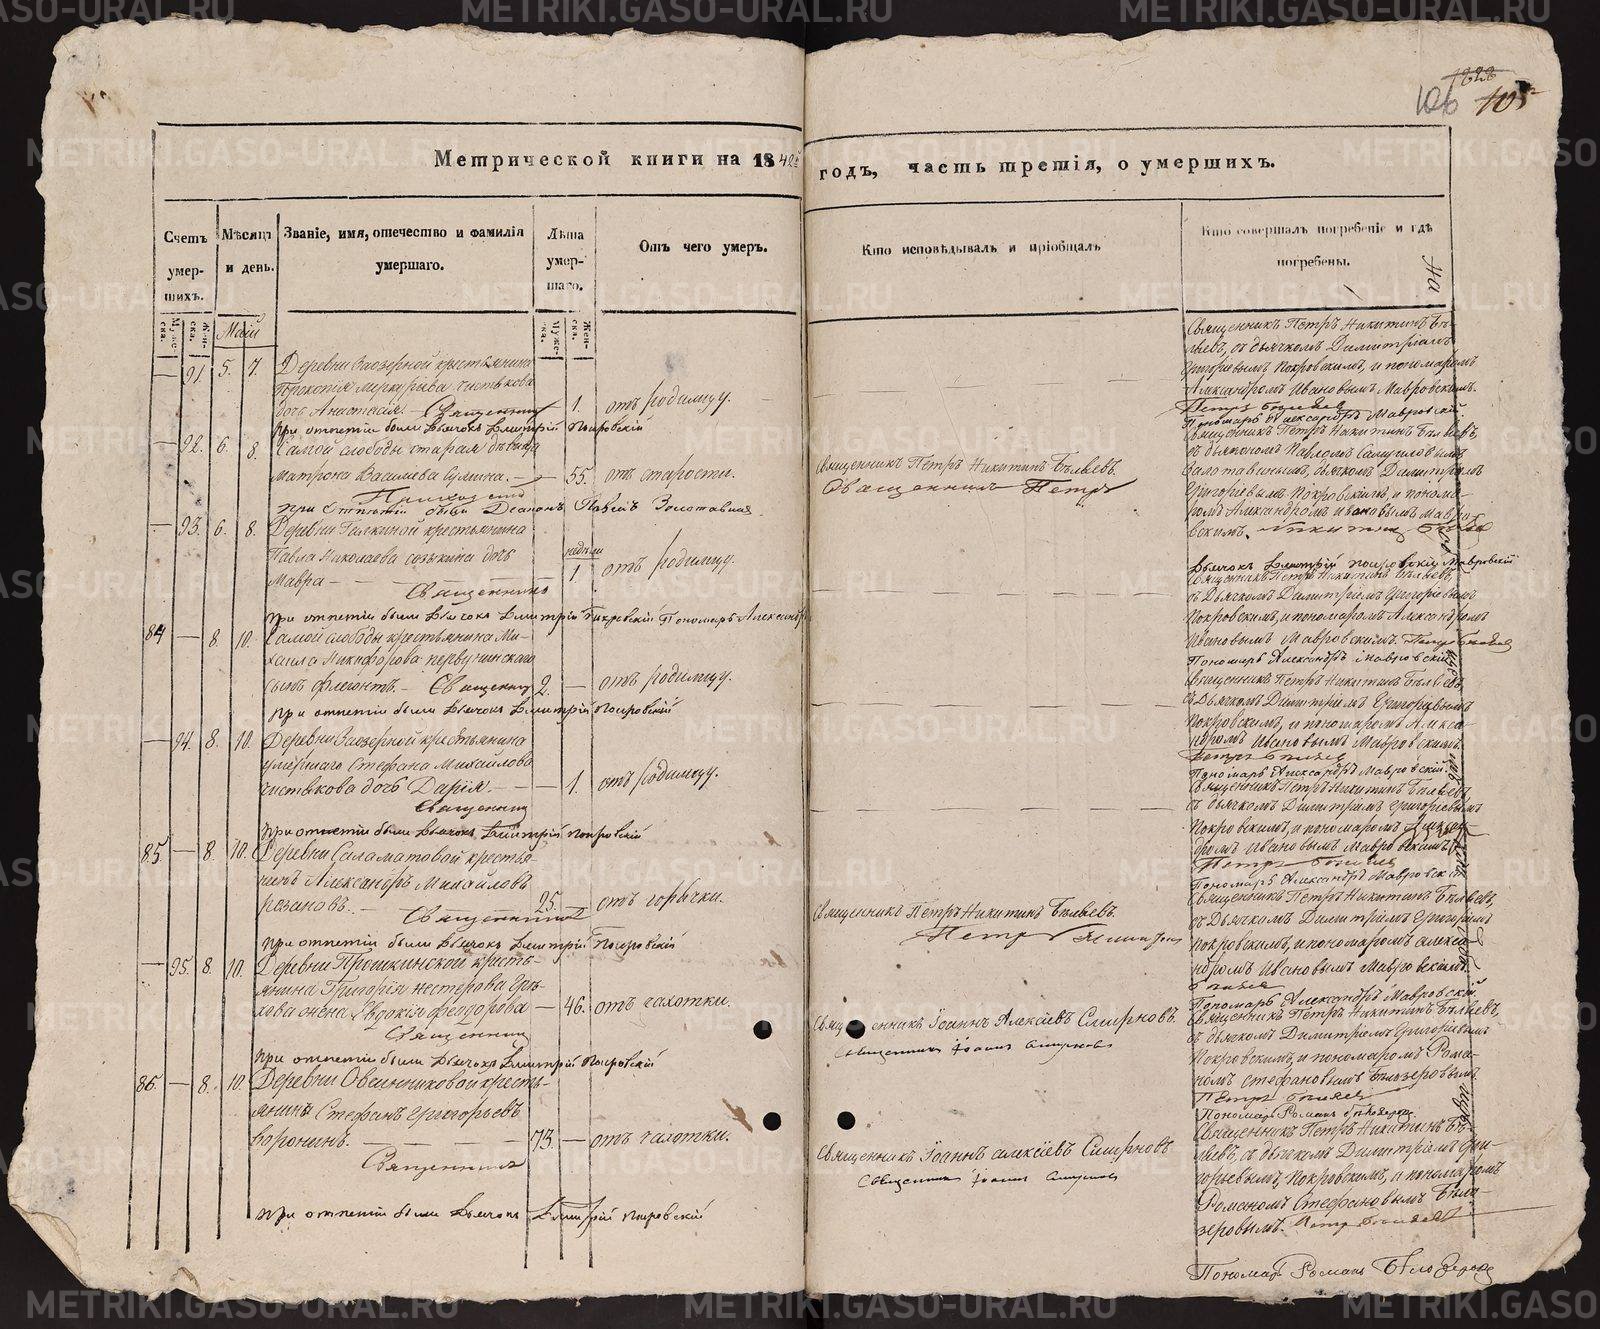 1828
106 105
Метрической книги на 1842 годъ, часть третія, о умершихъ.
Счетъ умер-шихъ.
Мѣсяцъ и день.
Званіе, имя, отечество и фамилія умершаго.
Лѣта умер-шаго.
Отъ чего умеръ.
Кто исповѣдывалъ и пріобщалъ
Кто совершалъ погребеніе и гдѣ погребены.
На
Муже-ска.
Жен-ска.
Муже-ска.
Жен-ска.
Май
91. 5. 7. Деревни Заозерной крестьянина
Прокопія Меркурьева Чистякова
дочь Анастасія. — Священникъ 1. отъ родимцу.
при отпетіи были Дьячокъ Дмитрій Покровскій
Священникъ Петръ Никитинъ Бѣ-
льевъ, съ дьячкомъ Димитріемъ
Григорьевымъ Покровскимъ, и пономаремъ
Александромъ Ивановымъ Мавровскимъ.
Пономарь Александръ Мавровскій.
92. 6. 8. Самой слободы старая дѣвица
Матрона Васильева — 55. отъ старости.
при отпетіи были Диаконъ Павелъ Золотавинъ
Священникъ Петръ Никитинъ Бѣльевъ.
Священникъ Петръ
Священникъ Петръ Никитинъ Бѣльевъ,
съ дьякономъ Павломъ Самуиловымъ
Золотавинымъ, дьячкомъ Димитріемъ
Григорьевымъ Покровскимъ, и понома-
ремъ Александромъ Ивановымъ Мавро-
вскимъ.
Дьячокъ Дмитрій Покровскій
93. 6. 8. Деревни Галкиной крестьянина
Павла Николаева дочь
Мавра — Священникъ недѣли 1. отъ родимцу.
при отпетіи были Дьячокъ Дмитрій Покровскій Пономарь Александръ Мавровскій
Священникъ Петръ Никитинъ Бѣльевъ,
съ Дьячкомъ Димитріемъ Григорьевымъ
Покровскимъ, и пономаремъ Александромъ
Ивановымъ Мавровскимъ.
Пономарь Александръ Мавровскій
84 — 8. 10. Самой слободы крестьянина Ми-
хаила Никифорова Первушинскаго
сынъ Флегонтъ. — Священникъ 2. — отъ родимцу.
при отпетіи были Дьячокъ Дмитрій Покровскій
Священникъ Петръ Никитинъ Бѣльевъ,
съ Дьячкомъ Димитріемъ Григорьевымъ
Покровскимъ, и пономаремъ Алекса-
ндромъ Ивановымъ Мавровскимъ.
Пономарь Александръ Мавровскій.
— 94. 8. 10. Деревни Заозерной крестьянина
умершаго Стефана Михайлова
Чистякова дочь Дарія. — 1. отъ родимцу.
Священникъ
при отпетіи были Дьячокъ Дмитрій Покровскій
Священникъ Петръ Никитинъ Бѣльевъ
съ дьячкомъ Димитріемъ Григорьевымъ
Покровскимъ, и пономаремъ Алексан-
дромъ Ивановымъ Мавровскимъ.
Пономарь Александръ Мавровскій
85. — 8. 10. Деревни Саламатовой крестья-
нинъ Александръ Михайловъ
Розановъ. — Священникъ 25. — отъ горячки.
при отпетіи были Дьячокъ Дмитрій Покровскій
Священникъ Петръ Никитинъ Бѣльевъ.
Петръ
Священникъ Петръ Никитинъ Бѣльевъ,
съ Дьячкомъ Димитріемъ Григорьевымъ
Покровскимъ, и пономаремъ Алекса-
ндромъ Ивановымъ Мавровскимъ.
Пономарь Александръ Мавровскій.
— 95. 8. 10. Деревни Прошкинской кресть-
янина Григорія Нестерова
жена Евдокія Феодорова — 46. отъ чахотки.
Священникъ
при отпетіи были Дьячокъ Дмитрій Покровскій
Священникъ Іоаннъ Алексіевъ Смирновъ.
Священникъ Іоаннъ Смирновъ
Священникъ Петръ Никитинъ Бѣльевъ,
съ дьячкомъ Димитріемъ Григорьевымъ
Покровскимъ, и пономаремъ Рома-
номъ Стефановымъ Бѣлозеровымъ.
Пономарь Романъ Бѣлозеровъ.
86. — 8. 10. Деревни Овсянниковой кресть-
янинъ Стефанъ Григорьевъ
Воронинъ. — 73. — отъ чахотки.
Священникъ
при отпетіи были Дьячокъ Дмитрій Покровскій
Священникъ Іоаннъ Алексіевъ Смирновъ
Священникъ Іоаннъ Смирновъ
Священникъ Петръ Никитинъ Бѣ-
льевъ, съ дьячкомъ Димитріемъ Гри-
горьевымъ Покровскимъ, и пономаремъ
Романомъ Стефановымъ Бѣло-
зеровымъ.
Пономарь Романъ Бѣлозеровъ
METRIKI.GASO-URAL.RU